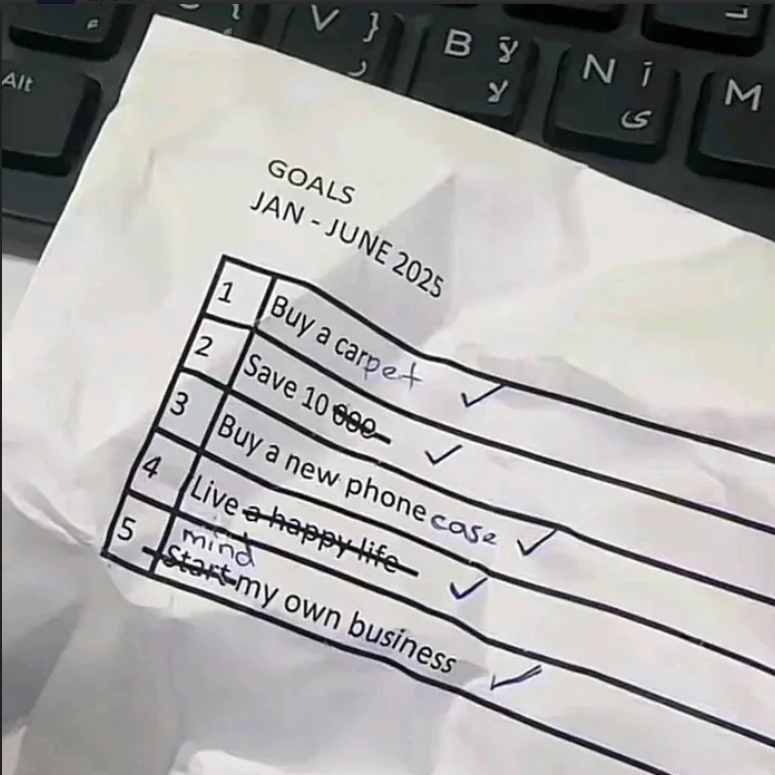 Alt
V }
ر
B لآ
لا
N آ
ى
M
GOALS
JAN - JUNE 2025
1 Buy a carpet ✓
2 Save 10 000 ✓
3 Buy a new phone case ✓
4 Live a happy life ✓
mind
5 Start my own business ✓